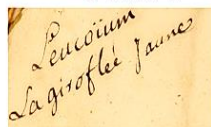 Leucoïum
La giroflée Jaune